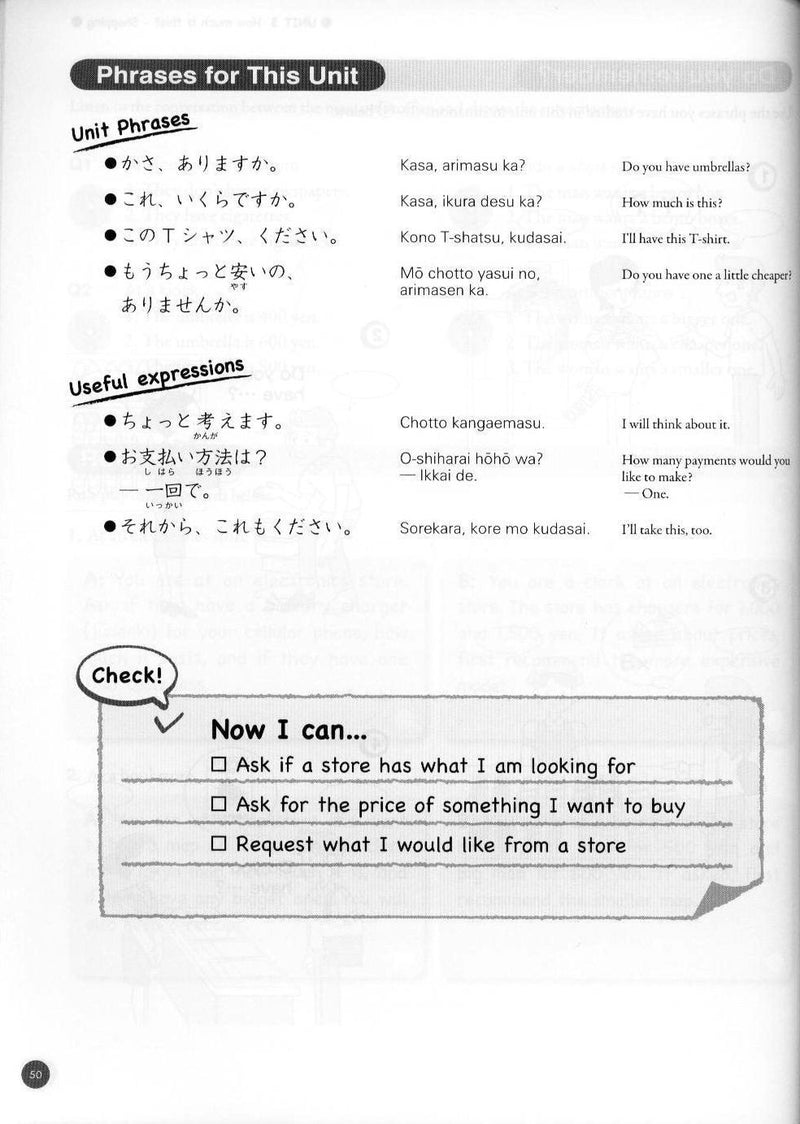 Phrases for This Unit
Unit Phrases
●かさ、ありますか。 Kasa, arimasu ka? Do you have umbrellas?
●これ、いくらですか。 Kasa, ikura desu ka? How much is this?
●このTシャツ、ください。 Kono T-shatsu, kudasai. I'll have this T-shirt.
●もうちょっと安いの、 Mō chotto yasui no, Do you have one a little cheaper?
やす
ありませんか。 arimasen ka.
Useful expressions
●ちょっと考えます。 Chotto kangaemasu. I will think about it.
かんが
●お支払い方法は? O-shiharai hōhō wa? How many payments would you
しはら ほうほう
— 一回で。 — Ikkai de. like to make?
いっかい — One.
●それから、これもください。 Sorekara, kore mo kudasai. I'll take this, too.
Check!
Now I can...
□ Ask if a store has what I am looking for
□ Ask for the price of something I want to buy
□ Request what I would like from a store
50